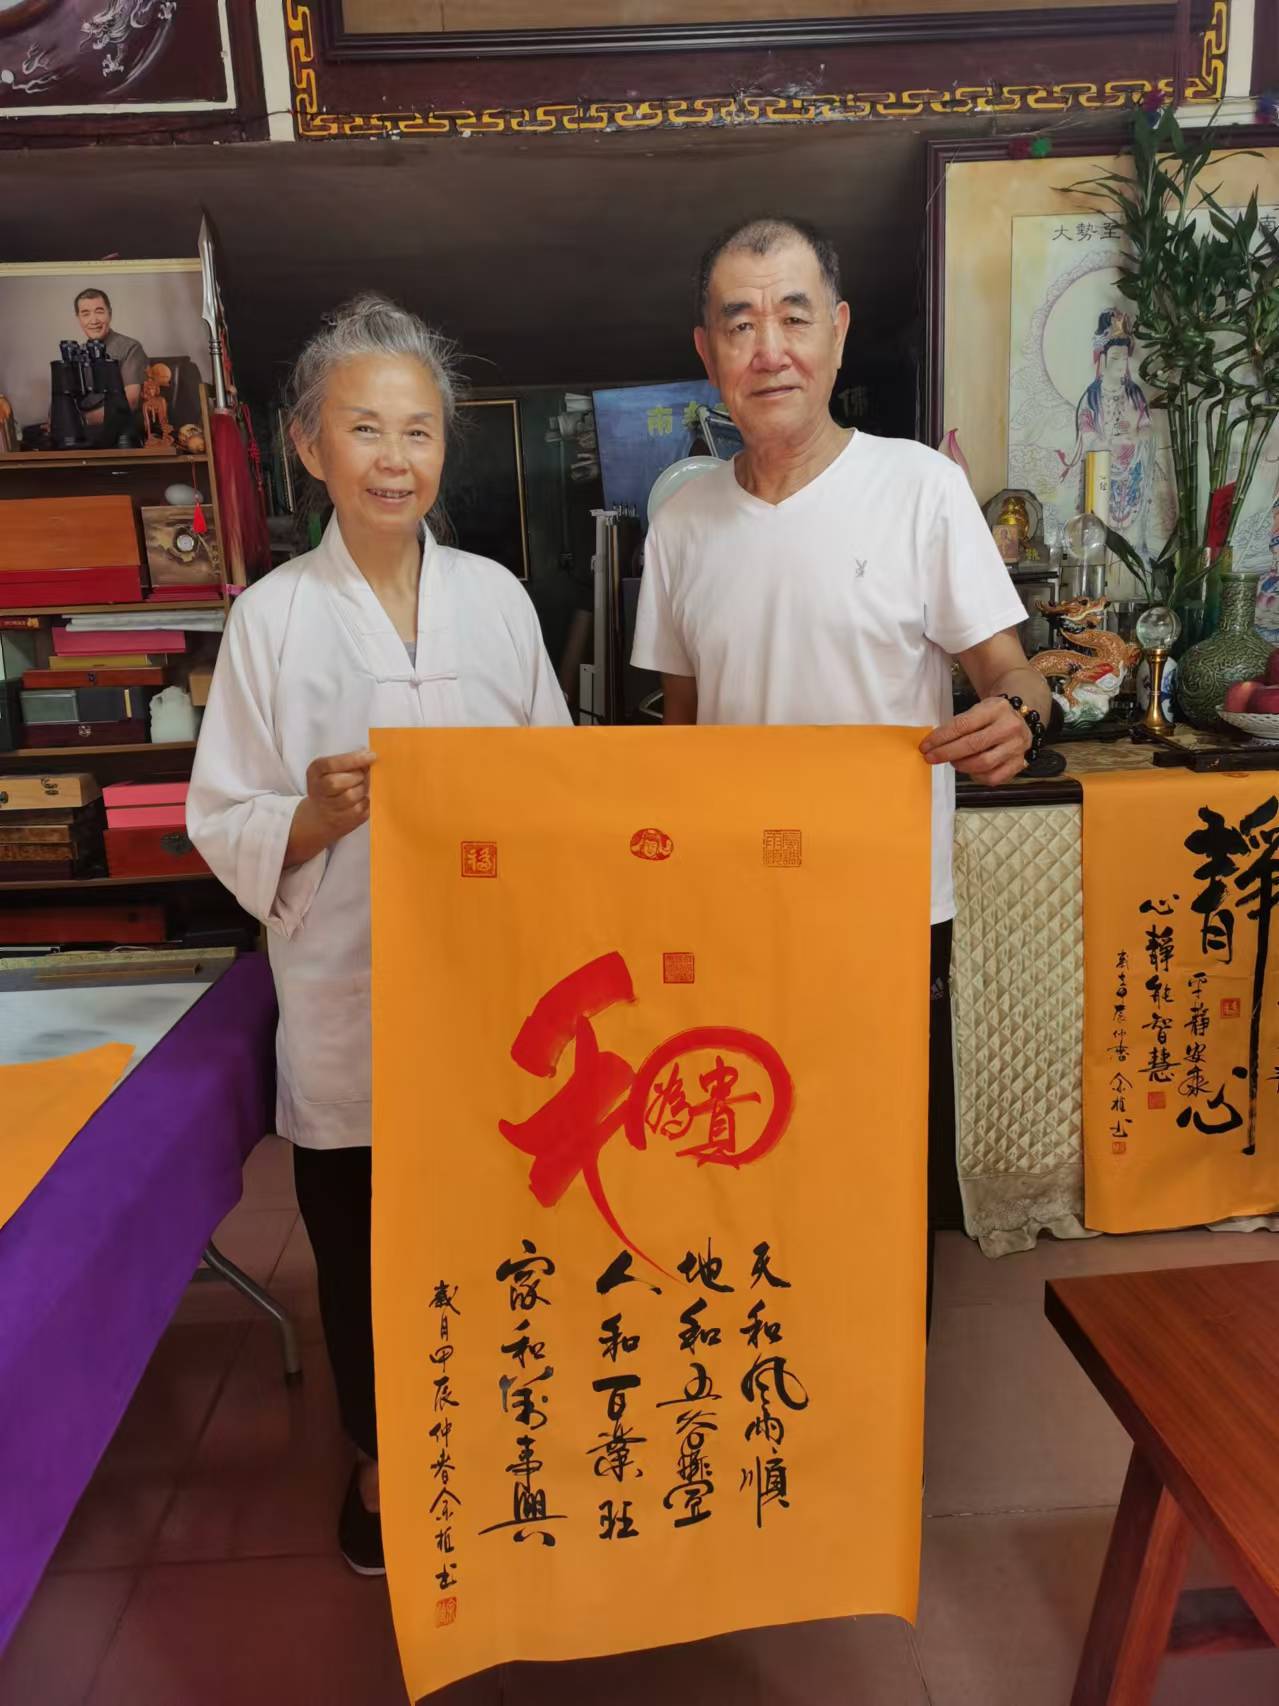 大勢至
南
佛
福
和
為貴
天和風雨順
地和五谷豐
人和百業旺
家和萬事興
歲月甲辰仲春余植书
靜心
心靜能智慧
甲辰仲春余植书